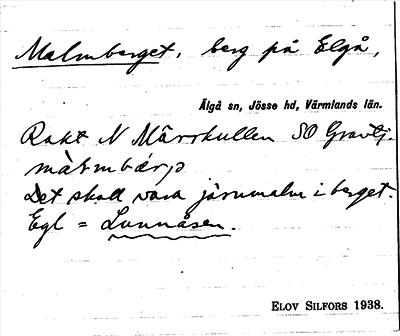 Malmberget, berg på Elgå,
Älgå sn, Jösse hd, Värmlands län.
Rakt N Mårrkullen SO Gravtj.
màlmbárjə
Det skall vara järnmalm i berget.
Egl = Lunnåsen.
ELOV SILFORS 1938.